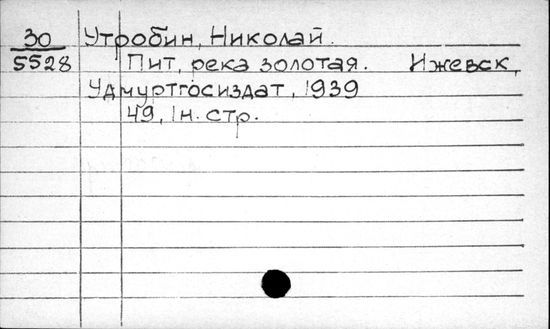 30 Утробин, Николай.
5528 Пит, река золотая. Ижевск,
Удмуртгосиздат, 1939
49, 1н. стр.